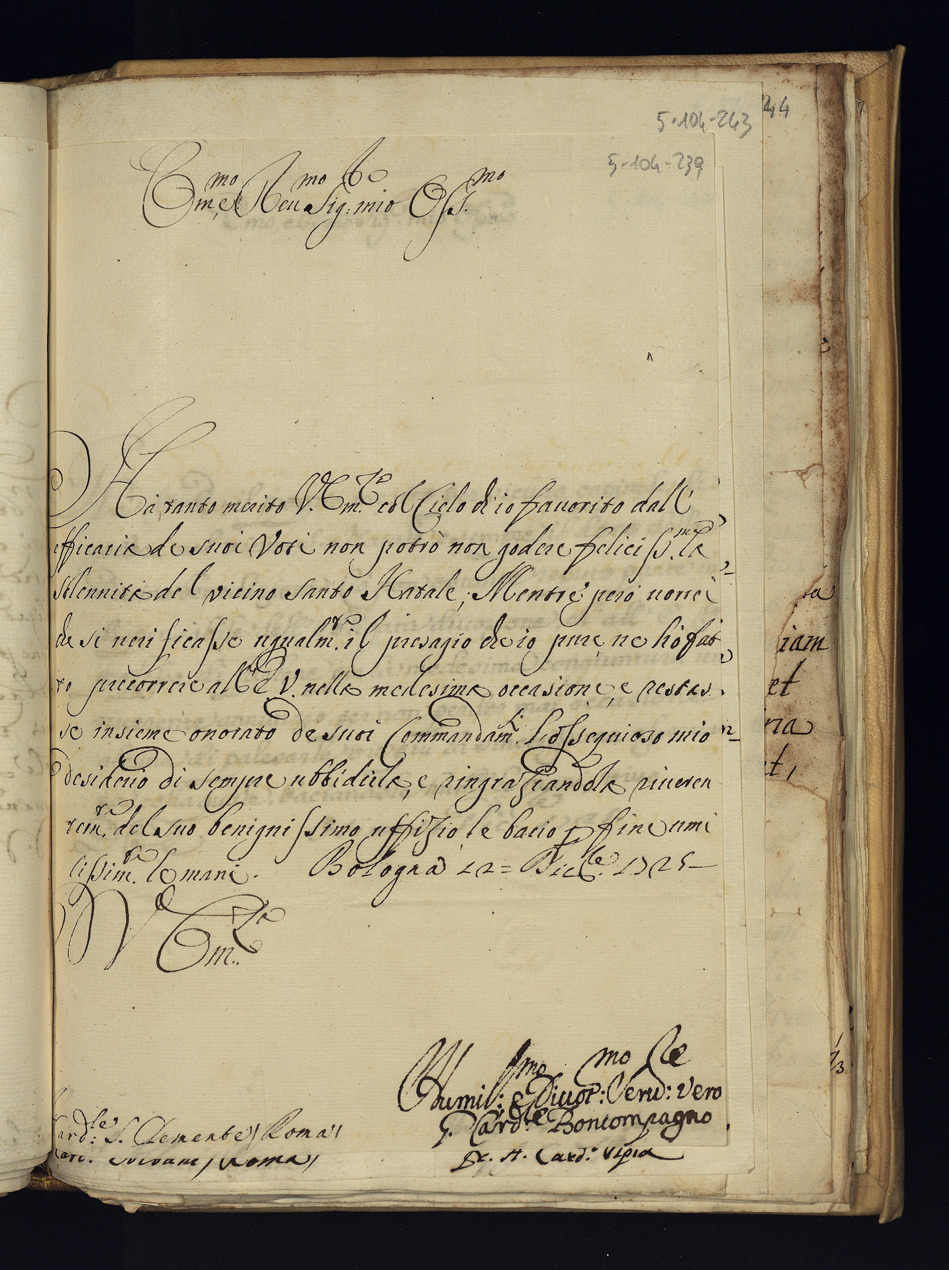 44
5-104-243
5-104-239
Em.mo e Reu.mo Sig:re mio Oss.mo
Ha tanto merito V. Em.za col Cielo ch'io favorito dall'
efficacia de suoi Voti non potrò non godere feliciss.ma la
solennità del vicino Santo Natale; Mentre però vorrei
che si verificasse ugualm.te il presagio che io pure ne hò fat-
to precorrere all' E. V. nella medesima occasione, e restas-
se insieme onorato de suoi Commandam.ti l'ossequioso mio
desiderio di sempre ubbidirla, e ringraziandola riveren
tem.te del suo benignissimo uffizio, le bacio p fine umi
lissim.te le mani. Bologna 22= Xbre. 1725
V. Em.za
Humil.mo e Divot:mo Serv:re vero
G. Card:le Boncompagno
Card:le S. Clemente / Roma /
/ Roma /
Fr. A. Card:
iam
et